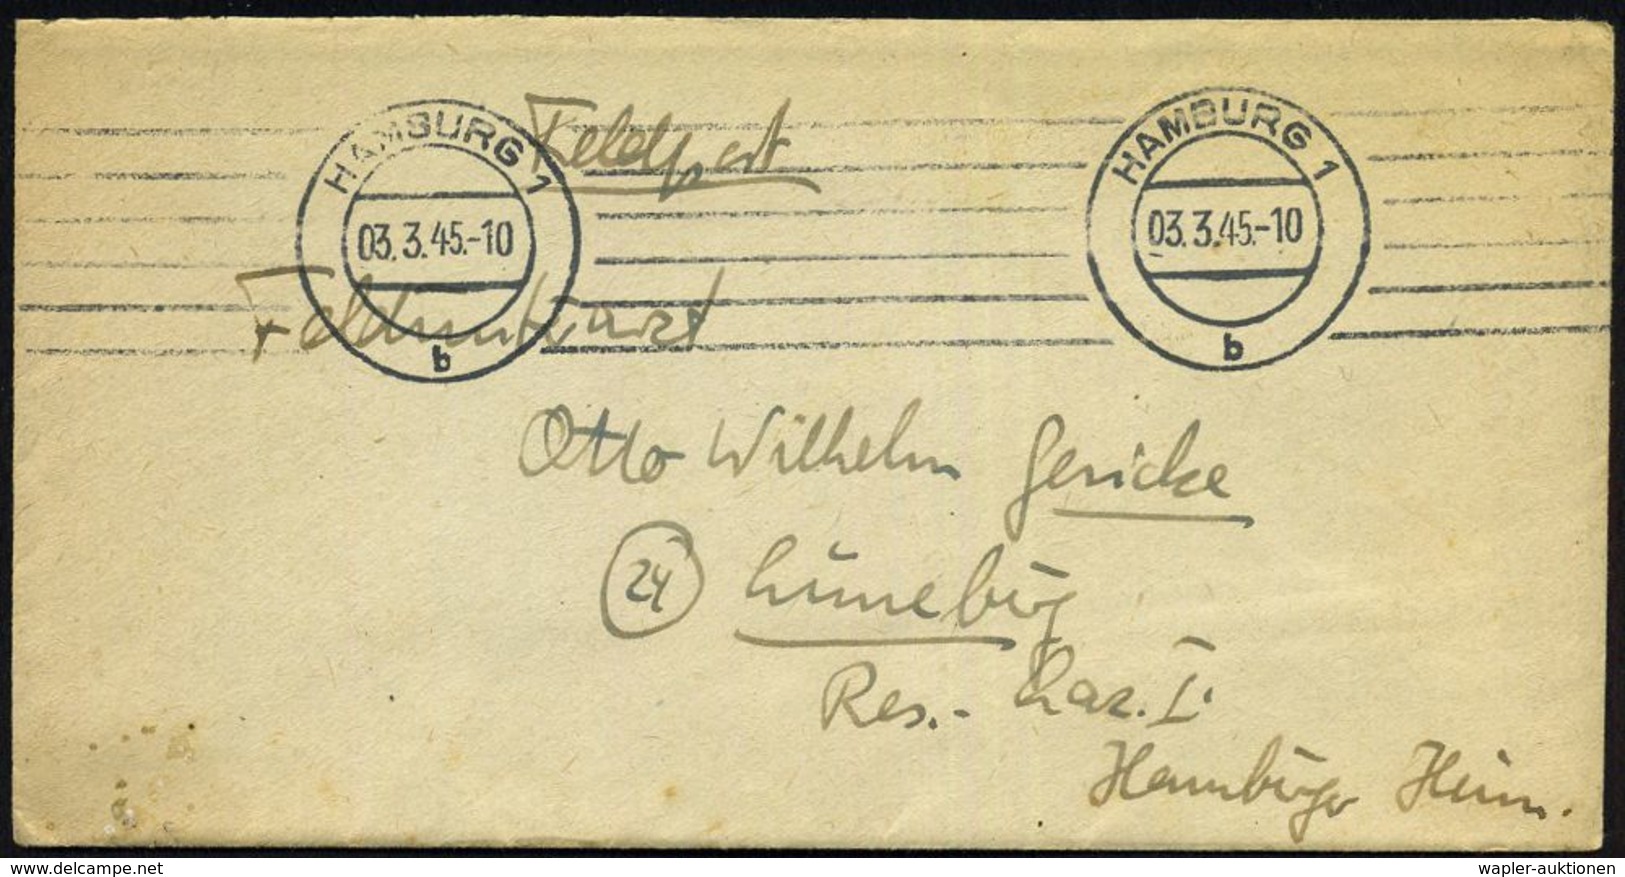 HAMBURG 1
03.3.45.-10
b
HAMBURG 1
03.3.45.-10
b
Feldpost
Feldunterarzt
Otto Wilhelm Gericke
24 Lüneburg
Res.- Laz. I.
Hamburger
wapler-auktionen